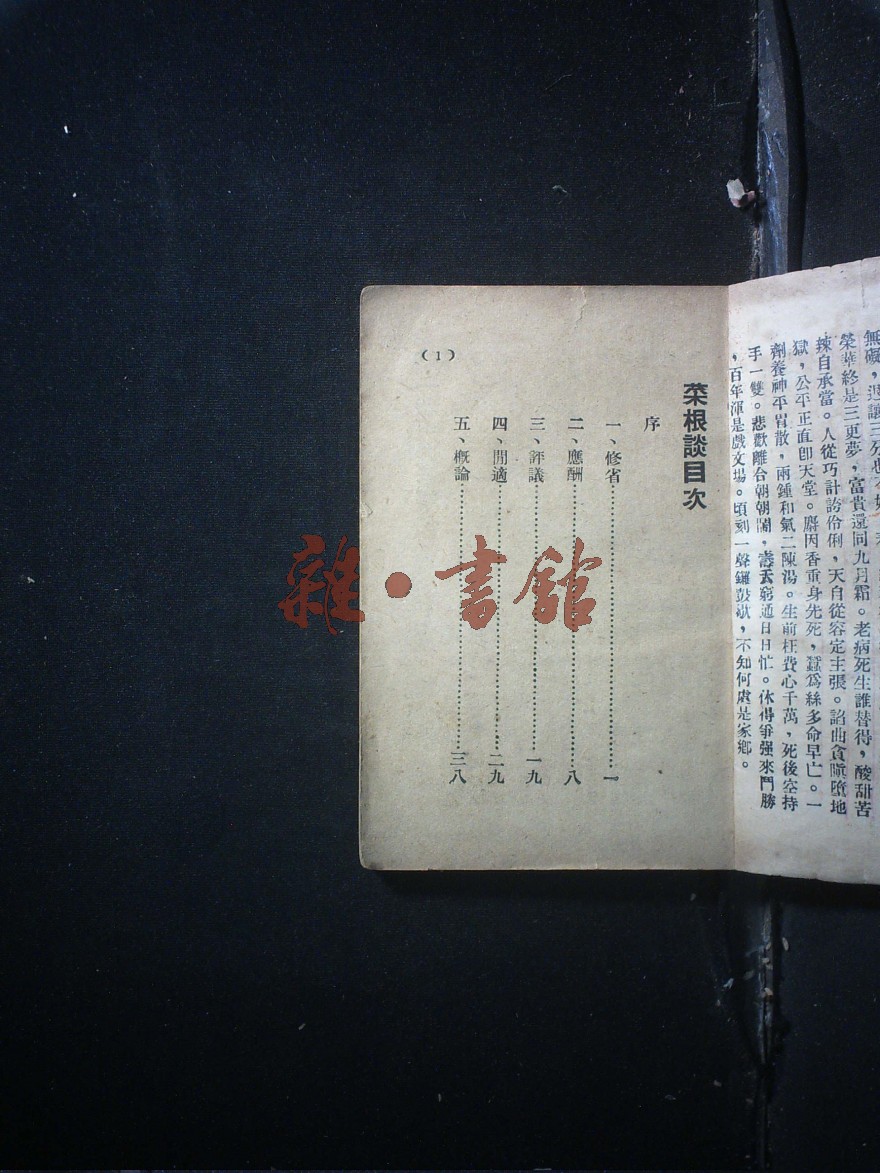 無礙，退讓三分
榮華終是三更夢，富貴還同九月霜。老病死生誰替得，酸甜苦
辣自承當。人從巧計誇伶俐，天自從容定主張。諂曲貪瞋墮地
獄，公平正直卽天堂。麝因香重身先死，蠶爲絲多命早亡。一
劑養神平胃散，兩鍾和氣二陳湯。生前枉費心千萬，死後空持
手一雙。悲歡離合朝朝鬧，壽夭窮通日日忙。休得爭强來鬥勝
，百年渾是戲文場。頃刻一聲鑼鼓歇，不知何處是家鄉。
菜根談目次
序
一、修省……一
二、應酬……八
三、評議……一九
四、閒適……二九
五、概論……三八
（1）
雜·書館